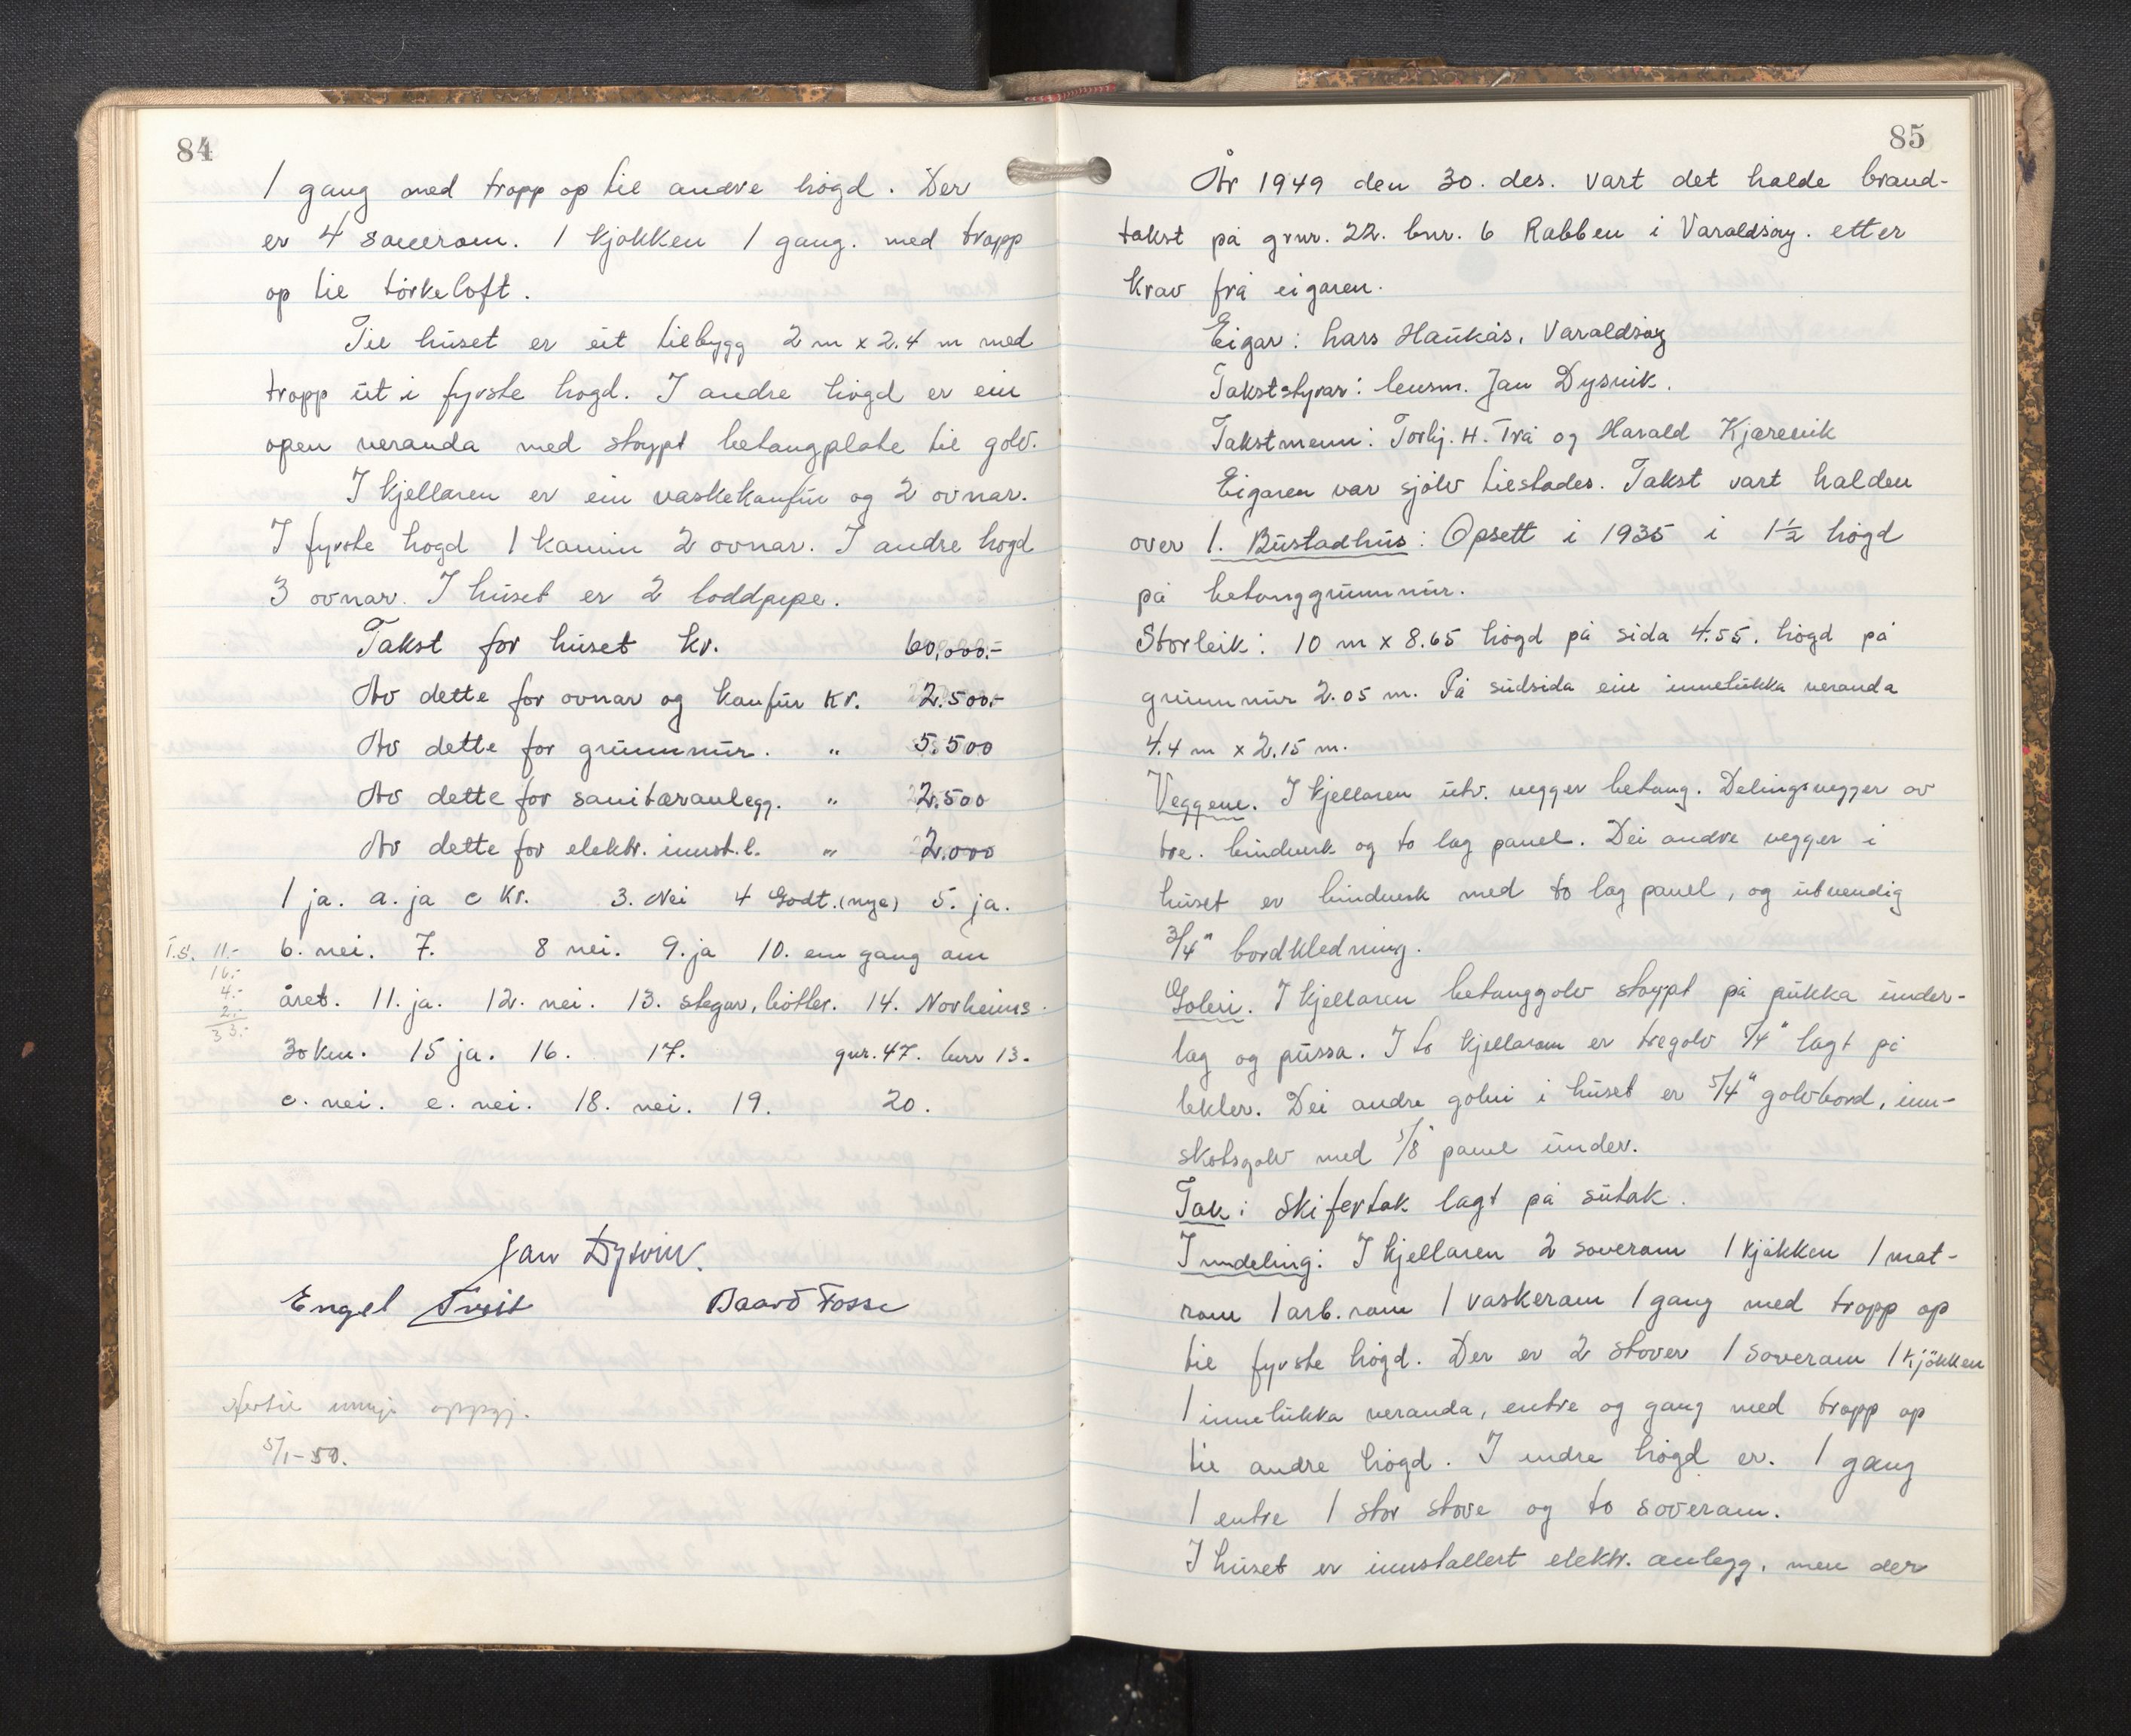 84
1 gang med tropp op til andre høgd. Der
er 4 soverom. 1 kjøkken 1 gang. med tropp
op til tørkeloft.
Til huset er eit tilbygg 2 m x 2.4 m med
tropp ut i fyrste høgd. I andre høgd er ein
open veranda med støypt betongplate til golv.
I kjellaren er ein vaskekomfur og 2 ovnar.
I fyrste høgd 1 kamin 2 ovnar. I andre høgd
3 ovnar. I huset er 2 loddpipe.
Takst for huset kr. 60,000.-
Av dette for ovnar og komfur kr. 2.500.-
Av dette for grunnmur. " 5.500
Av dette for sanitæranlegg. " 2.500
Av dette for elektr. innst.l. " 2.000
1 ja. a. ja c kr. 3. Nei 4 Godt.(nye) 5. ja.
T.S. 11.- 6. nei. 7. 8 nei. 9. ja 10. em gang om
16.-
4.- året. 11. ja. 12. nei. 13. stegar, bøtter. 14. Norheims
2.-
33.- 30 km. 15 ja. 16. 17. gnr. 47. bnr 13.
c. nei. e. nei. 18. nei. 19. 20.
Jan Dysvik.
Engel Tveit Baard Fosse
oppgj.
5/1-50.
85
År 1949 den 30. des. vart det halde brand-
takst på grnr. 22. bnr. 6 Rabben i Varaldsøy. etter
krav frå eigaren.
Eigar: Lars Haukås, Varaldsøy
Takststyrar: lensm. Jan Dysvik.
Takstmenn: Torbj. H. Trå og Harald Kjærevik
Eigaren var sjølv tilstades. Takst vart halden
over 1. Bustadhus: Opsett i 1935 i 1½ høgd
på betonggrunnmur.
Storleik: 10 m x 8.65 høgd på sida 4.55. høgd på
grunnmur 2.05 m. På sudsida ein innelukka veranda
4.4 m x 2.15 m.
Veggene. I kjellaren utv. vegger betong. Delingsvegger av
tre. bindverk og to lag panel. Dei andre vegger i
huset er bindverk med to lag panel, og utvendig
3/4" bordkledning.
Golvi. I kjellaren betonggolv støypt på pukka under-
lag og pussa. I to kjellarom er tregolv 5/4" lagt på
lekter. Dei andre golvi i huset er 5/4" golvbord, inn-
skotsgolv med 5/8" panel under.
Tak: Skifertak lagt på sutak.
Inndeling: I kjellaren 2 soverom 1 kjøkken 1 mat-
rom 1 arb. rom 1 vaskerom 1 gang med tropp op
til fyrste høgd. Der er 2 stover 1 soverom 1 kjökken
1 innelukka veranda, entre og gang med tropp op
til andre høgd. I andre høgd er. 1 gang
1 entre 1 stor stove og to soverom.
I huset er innstallert elektr. anlegg, men der